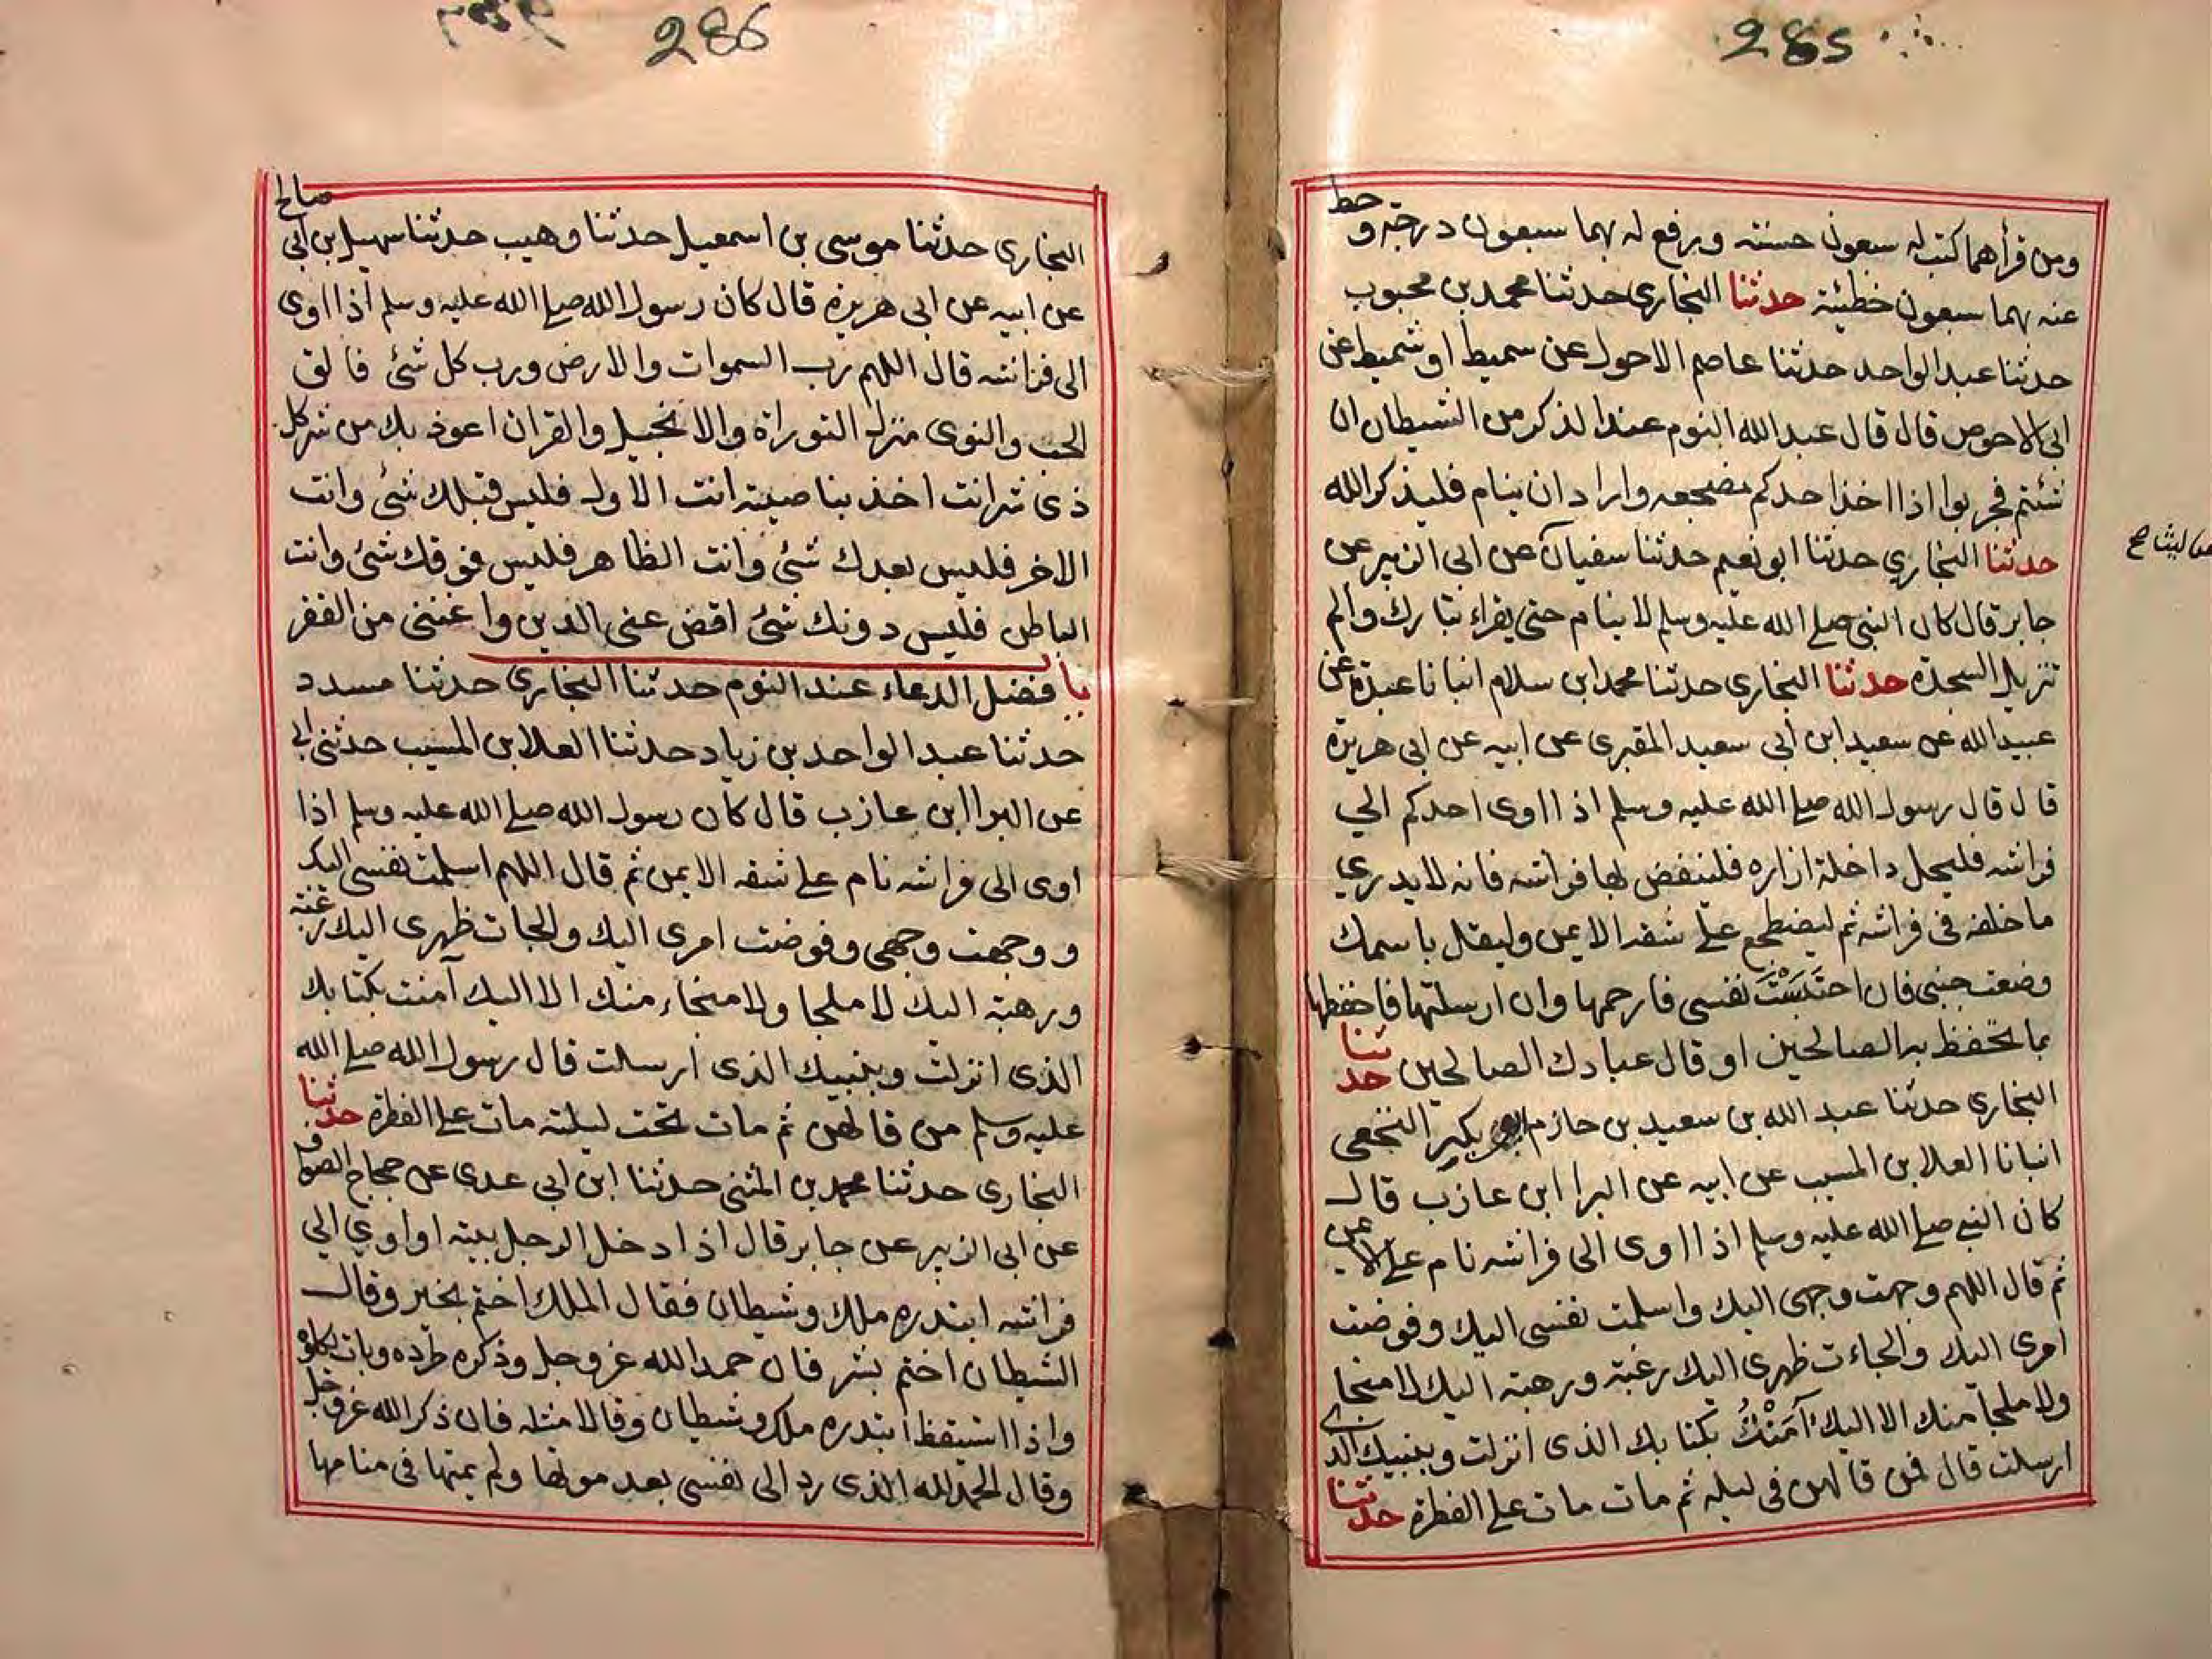 285
ومن قرأهما كتب له سبعون حسنة ويرفع له بهما سبعون درجة و حط
عنه بهما سبعون خطيئة حدثنا البخاري حدثنا محمد بن محبوب
حدثنا عبد الواحد حدثنا عاصم الاحول عن سميط او شميط عن
ابي الاحوص قال قال عبد الله النوم عند الذكر من الشيطان ان
شئتم فجربوا اذا اخذ احدكم مضجعه واراد ان ينام فليذكر الله
حدثنا البخاري حدثنا ابو نعيم حدثنا سفيان عن ابي الزبير عن
جابر قال كان النبي صلي الله عليه وسلم لا ينام حتى يقراء تبارك والم
تنزيل السجدة حدثنا البخاري حدثنا محمد ابن سلام انبانا عبدة عن
عبيد الله عن سعيد ابن ابي سعيد المقبرى عن ابيه عن ابي هريرة
قال قال رسول الله صلي الله عليه وسلم اذا اوى احدكم الي
فراشه فليحل داخلة ازاره فلينفض بها فراشه فانه لا يدري
ما خلفه في فراشه ثم ليضطجع علي شقه الايمن وليقل باسمك
وضعت جنبي فان احتبست نفسي فارحمها وان ارسلتها فاحفظها
بما تحفظ به الصالحين او قال عبادك الصالحين حدثنا
البخاري حدثنا عبد الله بن سعيد بن حازم ابو بكير النخعي
انبانا العلا بن المسيب عن ابيه عن البرا ابن عازب قال
كان النبي صلي الله عليه وسلم اذا اوى الى فراشه نام علي الايمن
ثم قال اللهم وجهت وجهى اليك واسلمت نفسى اليك وفوضت
امرى اليك والجاءت ظهرى اليك رغبة ورهبة اليك لا منجا
ولا ملجا منك الا اليك آمَنْتُ بكتابك الذى انزلت وبنبيك الذي
ارسلت قال فمن قالهن في ليله ثم مات مات علي الفطرة حدثنا
286
البخاري حدثنا موسى بن اسمعيل حدثنا وهيب حدثنا سهيل بن ابي صالح
عن ابيه عن ابي هريرة قال كان رسول الله صلي الله عليه وسلم اذا اوى
الى فراشه قال اللهم رب السموات والارض ورب كل شئ فالق
الحب والنوى منزل التوراة والانجيل والقران اعوذ بك من شر كل
ذى شر انت اخذ بناصيته انت الاول فليس قبلك شئ وانت
الاخر فليس بعدك شئ وانت الظاهر فليس فوقك شئ وانت
الباطن فليس دونك شئ اقض عني الدين واغنني من الفقر
باب فضل الدعاء عند النوم حدثنا البخاري حدثنا مسدد
حدثنا عبد الواحد بن زياد حدثنا العلا بن المسيب حدثني ابي
عن البرا ابن عازب قال كان رسول الله صلي الله عليه وسلم اذا
اوى الى فراشه نام علي شقه الايمن ثم قال اللهم اسلمت نفسى اليك
و وجهت وجهى وفوضت امرى اليك والجات ظهرى اليك رغبة
ورهبة اليك لا ملجا ولا منجاء منك الا اليك آمنت بكتابك
الذى انزلت وبنبيك الذى ارسلت قال رسول الله صلي الله
عليه وسلم من قالهن ثم مات تحت ليلته مات علي الفطرة حدثنا
البخارى حدثنا محمد بن المثنى حدثنا ابن ابي عدى عن حجاج الصواف
عن ابي الزبير عن جابر قال اذا دخل الرجل بيته او اوي الي
فراشه ابتدره ملك وشيطان فقال الملك اختم بخير وقال
الشيطان اختم بشر فان حمد الله عز وجل وذكره طرده وبات يكلؤه
واذا استيقظ ابتدره ملك وشيطان وقالا مثله فان ذكر الله عز وجل
وقال الحمد لله الذى رد الى نفسى بعد موتها ولم يمتها في منامها